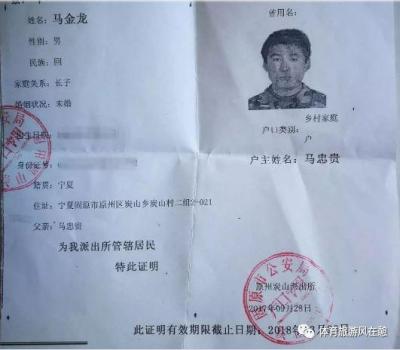 姓名：马金龙
曾用名：
性别：男
民族：回
家庭关系：长子
婚姻状况：未婚
乡村家庭
户口类别：
户
出生日期：
身份证号：
户主姓名：马忠贵
籍贯：宁夏
住址：宁夏固原市原州区炭山乡炭山村二组2-021
父亲：马忠贵
为我派出所管辖居民
特此证明
固原市公安局
原州炭山派出所
2017-09-28日
此证明有效期限截止日期：2018
体育旅游风在憩